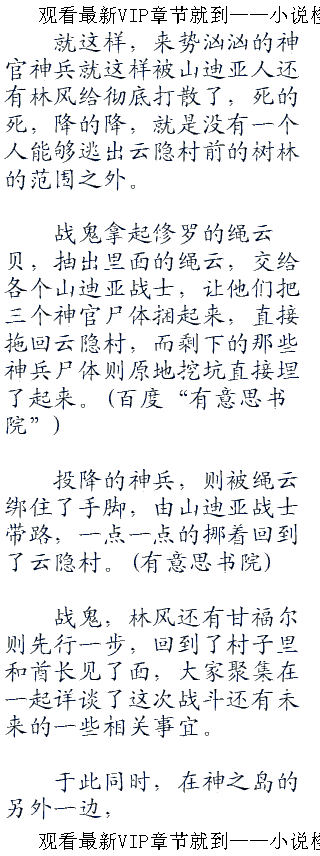 观看最新VIP章节就到——小说检
就这样，来势汹汹的神
官神兵就这样被山迪亚人还
有林风给彻底打散了，死的
死，降的降，就是没有一个
人能够逃出云隐村前的树林
的范围之外。
战鬼拿起修罗的绳云
贝，抽出里面的绳云，交给
各个山迪亚战士，让他们把
三个神官尸体捆起来，直接
拖回云隐村，而剩下的那些
神兵尸体则原地挖坑直接埋
了起来。(百度“有意思书
院”)
投降的神兵，则被绳云
绑住了手脚，由山迪亚战士
带路，一点一点的挪着回到
了云隐村。(有意思书院)
战鬼，林风还有甘福尔
则先行一步，回到了村子里
和酋长见了面，大家聚集在
一起详谈了这次战斗还有未
来的一些相关事宜。
于此同时，在神之岛的
另外一边，
观看最新VIP章节就到——小说检